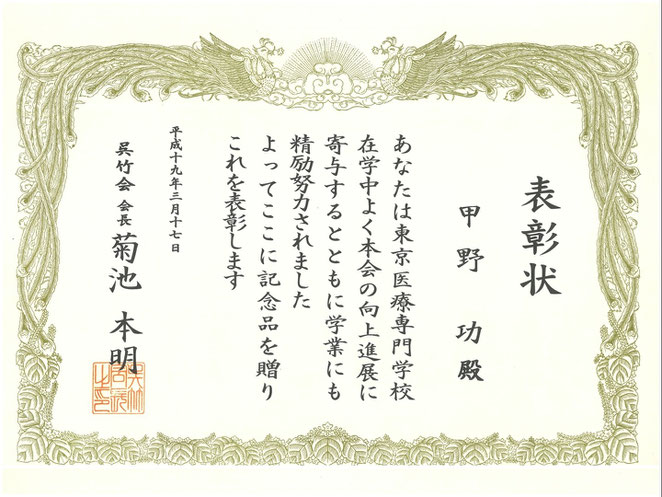 表彰状
甲野 功殿
あなたは東京医療専門学校
在学中よく本会の向上進展に
寄与するとともに学業にも
精励努力されました
よってここに記念品を贈り
これを表彰します
平成十九年三月十七日
呉竹会 会長 菊池 本明